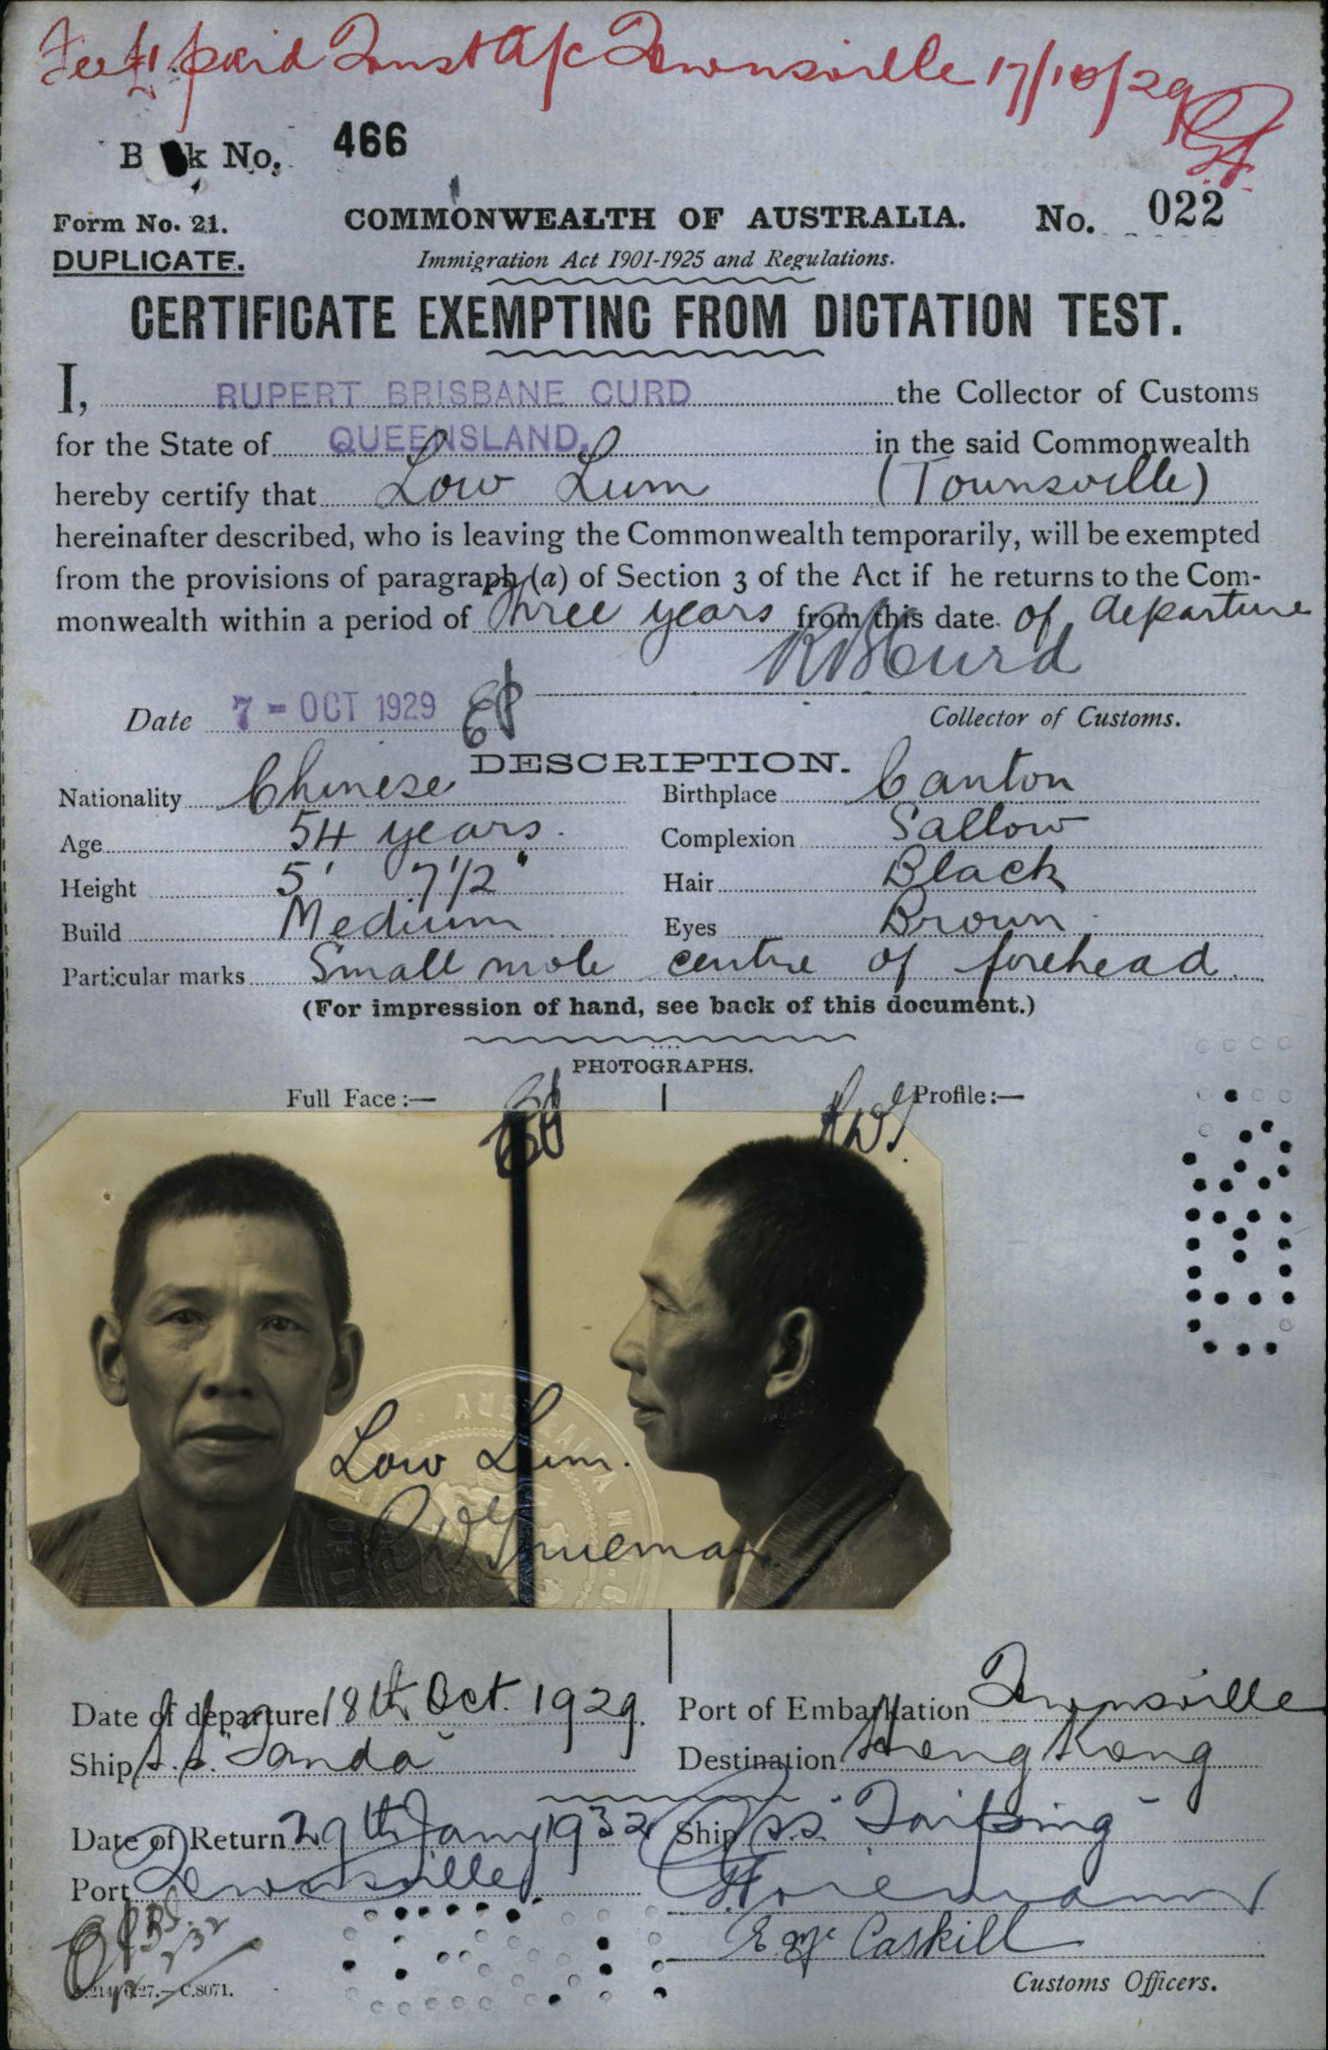 Fee £1 paid Trust A/c Townsville 17/10/29
B k No. 466
Form No. 21. COMMONWEALTH OF AUSTRALIA. No. 022
DUPLICATE. Immigration Act 1901-1925 and Regulations.
CERTIFICATE EXEMPTING FROM DICTATION TEST.
I, RUPERT BRISBANE CURD the Collector of Customs
for the State of QUEENSLAND. in the said Commonwealth
hereby certify that Low Lum (Townsville)
hereinafter described, who is leaving the Commonwealth temporarily, will be exempted
from the provisions of paragraph (a) of Section 3 of the Act if he returns to the Com-
monwealth within a period of three years from this date of departure
R B Curd
Date 7 - OCT 1929 Collector of Customs.
DESCRIPTION.
Nationality Chinese Birthplace Canton
Age 54 years. Complexion Sallow
Height 5' 7 1/2" Hair Black
Build Medium Eyes Brown
Particular marks Small mole centre of forehead.
(For impression of hand, see back of this document.)
PHOTOGRAPHS.
Full Face:— Profile:—
Low Lum.
Date of departure 18th Oct. 1929. Port of Embarkation Townsville
Ship s.s. "Tanda" Destination Hong Kong
Date of Return 29th Jany 1932 Ship s.s. "Taiping"
Port Townsville
E. Mc Caskill
C.8071. Customs Officers.